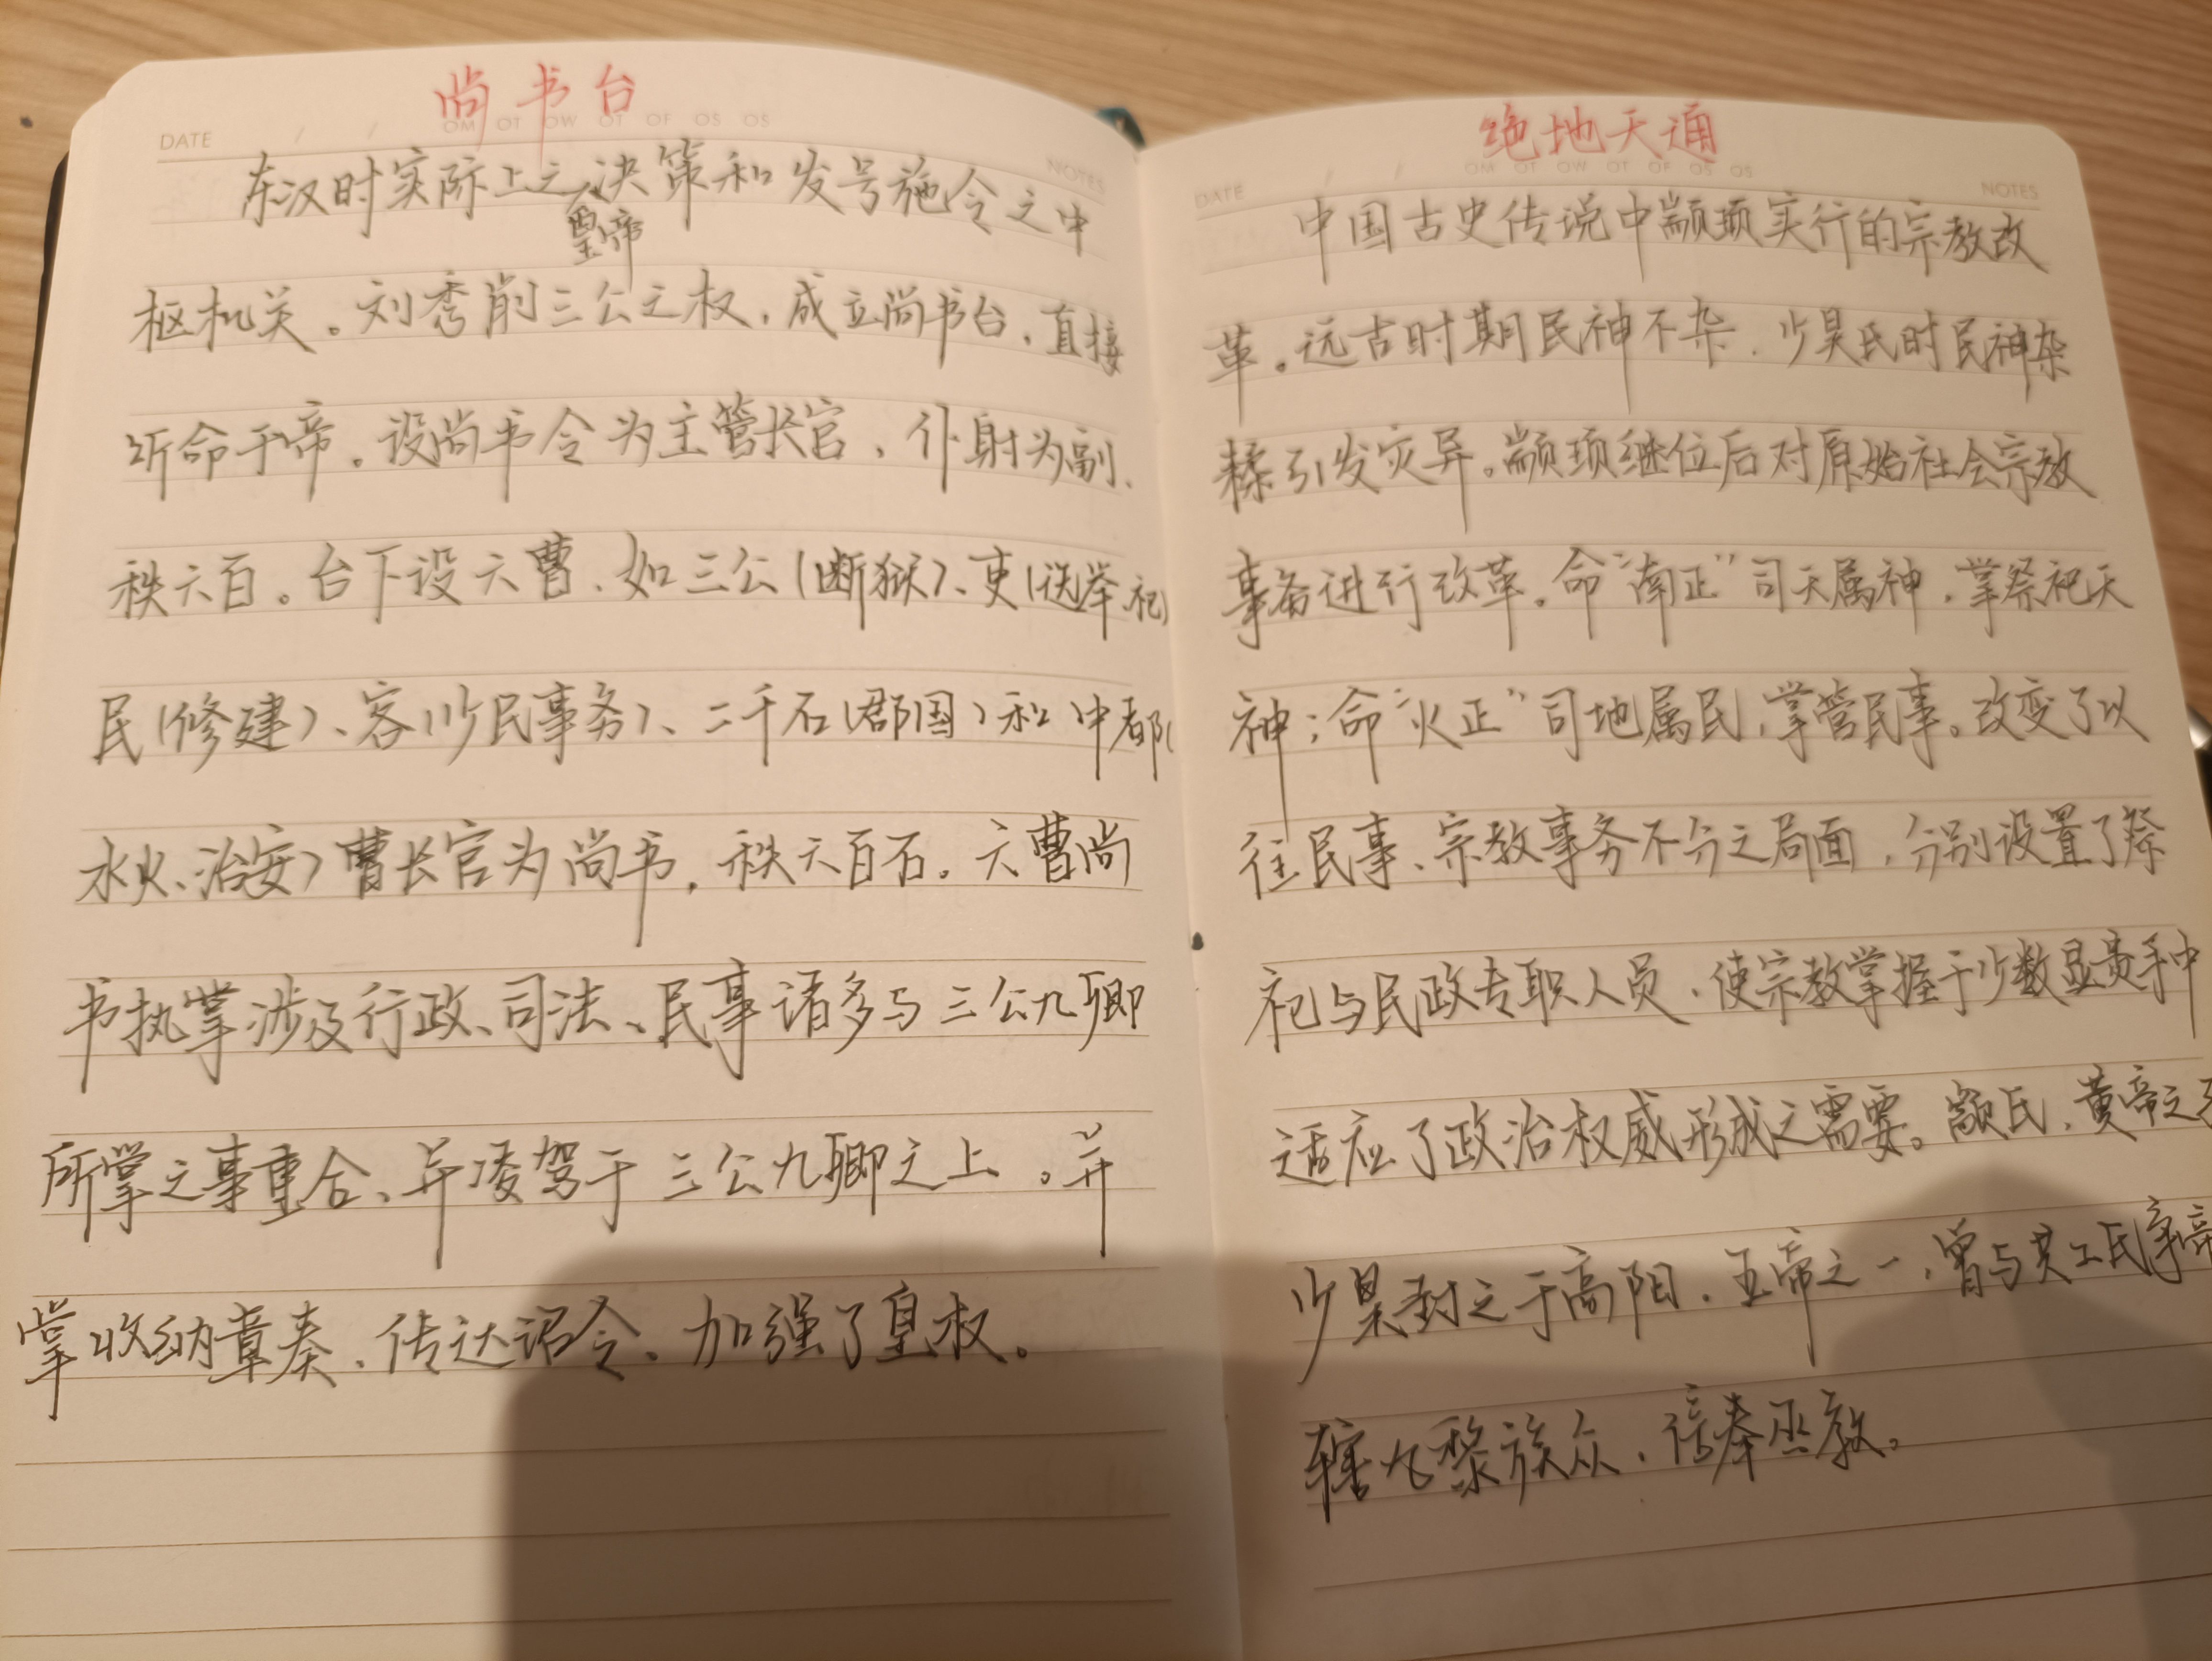 尚书台
DATE / / OM OT OW OT OF OS OS NOTES
东汉时实际上之皇帝决策和发号施令之中
枢机关。刘秀削三公之权,成立尚书台,直接
听命于帝。设尚书令为主管长官,仆射为副、
秩六百。台下设六曹、如三公(断狱)、吏(选举、祀)
民(修建)、客(少民事务)、二千石(郡国)和中都(
水火、治安)曹长官为尚书,秩六百石。六曹尚
书执掌涉及行政、司法、民事诸多与三公九卿
所掌之事重合、并凌驾于三公九卿之上。并
掌收纳章奏、传达诏令、加强了皇权。
绝地天通
DATE / / OM OT OW OT OF OS OS NOTES
中国古史传说中颛顼实行的宗教改
革。远古时期民神不杂,少昊氏时民神杂
糅引发灾异。颛顼继位后对原始社会宗教
事务进行改革。命“南正”司天属神,掌祭祀天
神;命“火正”司地属民,掌管民事。改变了以
往民事、宗教事务不分之局面,分别设置了祭
祀与民政专职人员,使宗教掌握于少数显贵手中
适应了政治权威形成之需要。颛氏,黄帝之
少昊封之于高阳,五帝之一,曾与共工氏争帝
辖九黎族众,信奉巫教。